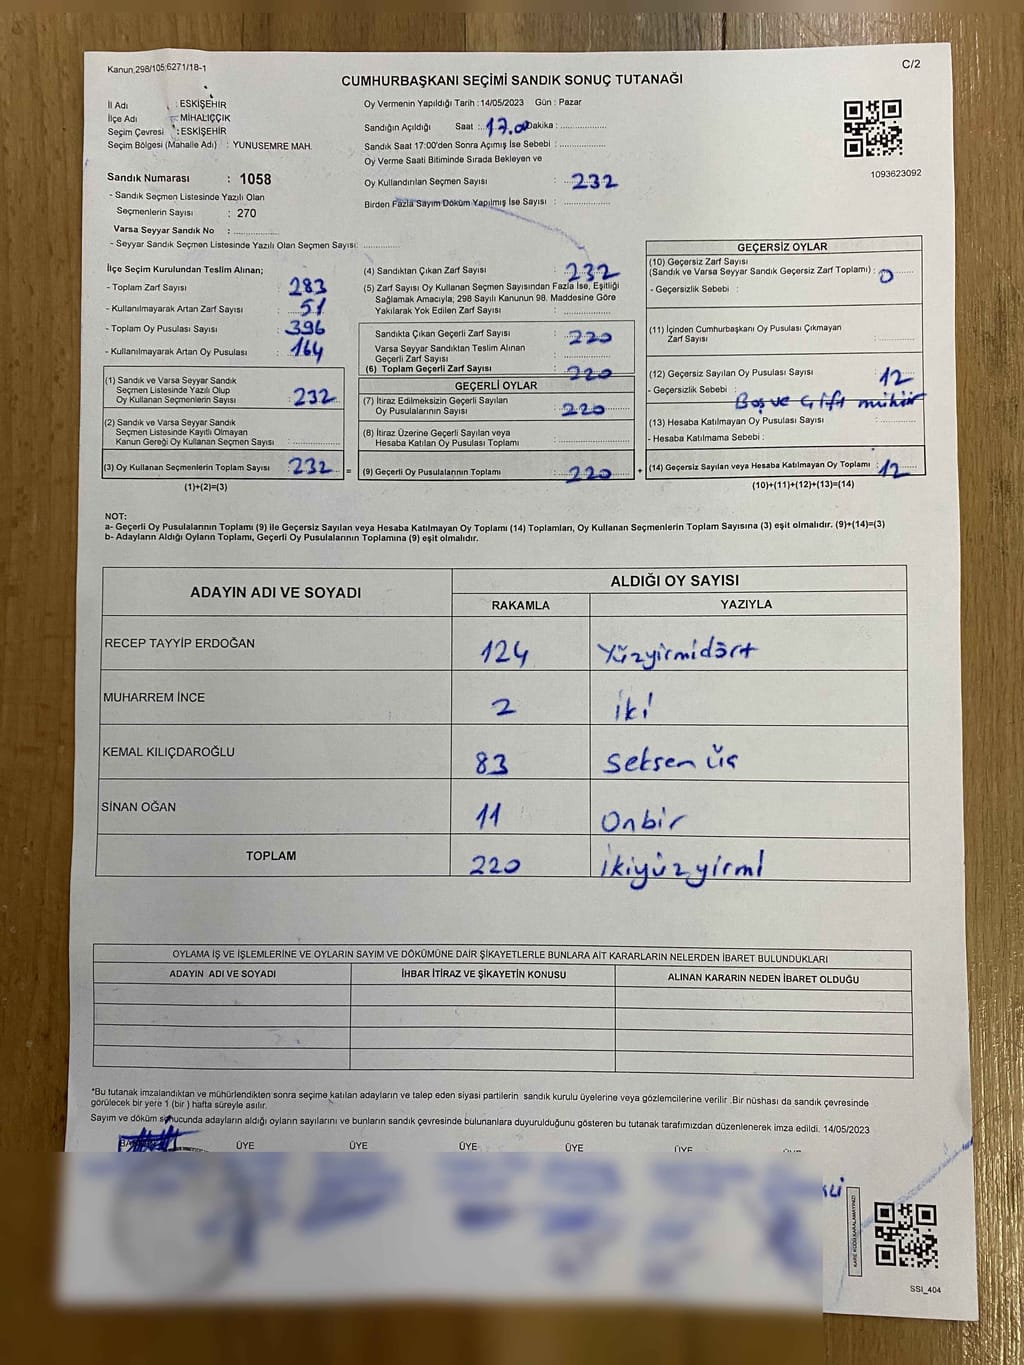 Kanun 298/105 6271/18-1
C/2
CUMHURBAŞKANI SEÇİMİ SANDIK SONUÇ TUTANAĞI
İl Adı : ESKİŞEHİR
İlçe Adı : MİHALIÇÇIK
Seçim Çevresi : ESKİŞEHİR
Seçim Bölgesi (Mahalle Adı) : YUNUSEMRE MAH.
Sandık Numarası : 1058
- Sandık Seçmen Listesinde Yazılı Olan
Seçmenlerin Sayısı : 270
Varsa Seyyar Sandık No : ................
- Seyyar Sandık Seçmen Listesinde Yazılı Olan Seçmen Sayısı: .............
Oy Vermenin Yapıldığı Tarih : 14/05/2023 Gün : Pazar
Sandığın Açıldığı Saat : 17.00 Dakika : ................
Sandık Saat 17:00'den Sonra Açımış İse Sebebi : ................
Oy Verme Saati Bitiminde Sırada Bekleyen ve
Oy Kullandırılan Seçmen Sayısı : 232
Birden Fazla Sayım Döküm Yapılmış İse Sayısı : ................
1093623092
İlçe Seçim Kurulundan Teslim Alınan;
- Toplam Zarf Sayısı : 283
- Kullanılmayarak Artan Zarf Sayısı : 51
- Toplam Oy Pusulası Sayısı : 396
- Kullanılmayarak Artan Oy Pusulası : 164
(1) Sandık ve Varsa Seyyar Sandık
Seçmen Listesinde Yazılı Olup
Oy Kullanan Seçmenlerin Sayısı : 232
(2) Sandık ve Varsa Seyyar Sandık
Seçmen Listesinde Kayıtlı Olmayan
Kanun Gereği Oy Kullanan Seçmen Sayısı : .............
(3) Oy Kullanan Seçmenlerin Toplam Sayısı : 232 =
(1)+(2)=(3)
(4) Sandıktan Çıkan Zarf Sayısı : 232
(5) Zarf Sayısı Oy Kullanan Seçmen Sayısından Fazla İse, Eşitliği
Sağlamak Amacıyla; 298 Sayılı Kanunun 98. Maddesine Göre
Yakılarak Yok Edilen Zarf Sayısı : .............
Sandıkta Çıkan Geçerli Zarf Sayısı : 220
Varsa Seyyar Sandıktan Teslim Alınan
Geçerli Zarf Sayısı : .............
(6) Toplam Geçerli Zarf Sayısı : 220
GEÇERLİ OYLAR
(7) İtiraz Edilmeksizin Geçerli Sayılan
Oy Pusulalarının Sayısı : 220
(8) İtiraz Üzerine Geçerli Sayılan veya
Hesaba Katılan Oy Pusulası Toplamı : .............
(9) Geçerli Oy Pusulalarının Toplamı : 220 +
GEÇERSİZ OYLAR
(10) Geçersiz Zarf Sayısı
(Sandık ve Varsa Seyyar Sandık Geçersiz Zarf Toplamı) : 0
- Geçersizlik Sebebi :
(11) İçinden Cumhurbaşkanı Oy Pusulası Çıkmayan
Zarf Sayısı : .............
(12) Geçersiz Sayılan Oy Pusulası Sayısı : 12
- Geçersizlik Sebebi : Boş ve Çift mühür
(13) Hesaba Katılmayan Oy Pusulası Sayısı : .............
- Hesaba Katılmama Sebebi :
(14) Geçersiz Sayılan veya Hesaba Katılmayan Oy Toplamı : 12
(10)+(11)+(12)+(13)=(14)
NOT:
a- Geçerli Oy Pusulalarının Toplamı (9) ile Geçersiz Sayılan veya Hesaba Katılmayan Oy Toplamı (14) Toplamları, Oy Kullanan Seçmenlerin Toplam Sayısına (3) eşit olmalıdır. (9)+(14)=(3)
b- Adayların Aldığı Oyların Toplamı, Geçerli Oy Pusulalarının Toplamına (9) eşit olmalıdır.
ADAYIN ADI VE SOYADI
ALDIĞI OY SAYISI
RAKAMLA YAZIYLA
RECEP TAYYİP ERDOĞAN 124 Yüzyirmidört
MUHARREM İNCE 2 iki
KEMAL KILIÇDAROĞLU 83 Seksen üç
SİNAN OĞAN 11 Onbir
TOPLAM 220 ikiyüzyirmi
OYLAMA İŞ VE İŞLEMLERİNE VE OYLARIN SAYIM VE DÖKÜMÜNE DAİR ŞİKAYETLERLE BUNLARA AİT KARARLARIN NELERDEN İBARET BULUNDUKLARI
ADAYIN ADI VE SOYADI İHBAR İTİRAZ VE ŞİKAYETİN KONUSU ALINAN KARARIN NEDEN İBARET OLDUĞU
*Bu tutanak imzalandıktan ve mühürlendikten sonra seçime katılan adayların ve talep eden siyasi partilerin sandık kurulu üyelerine veya gözlemcilerine verilir .Bir nüshası da sandık çevresinde
görülecek bir yere 1 (bir ) hafta süreyle asılır.
Sayım ve döküm sonucunda adayların aldığı oyların sayılarını ve bunların sandık çevresinde bulunanlara duyurulduğunu gösteren bu tutanak tarafımızdan düzenlenerek imza edildi. 14/05/2023
ÜYE ÜYE ÜYE ÜYE ÜYE
KARE KODU KARALAMAYINIZ!
SSI_404